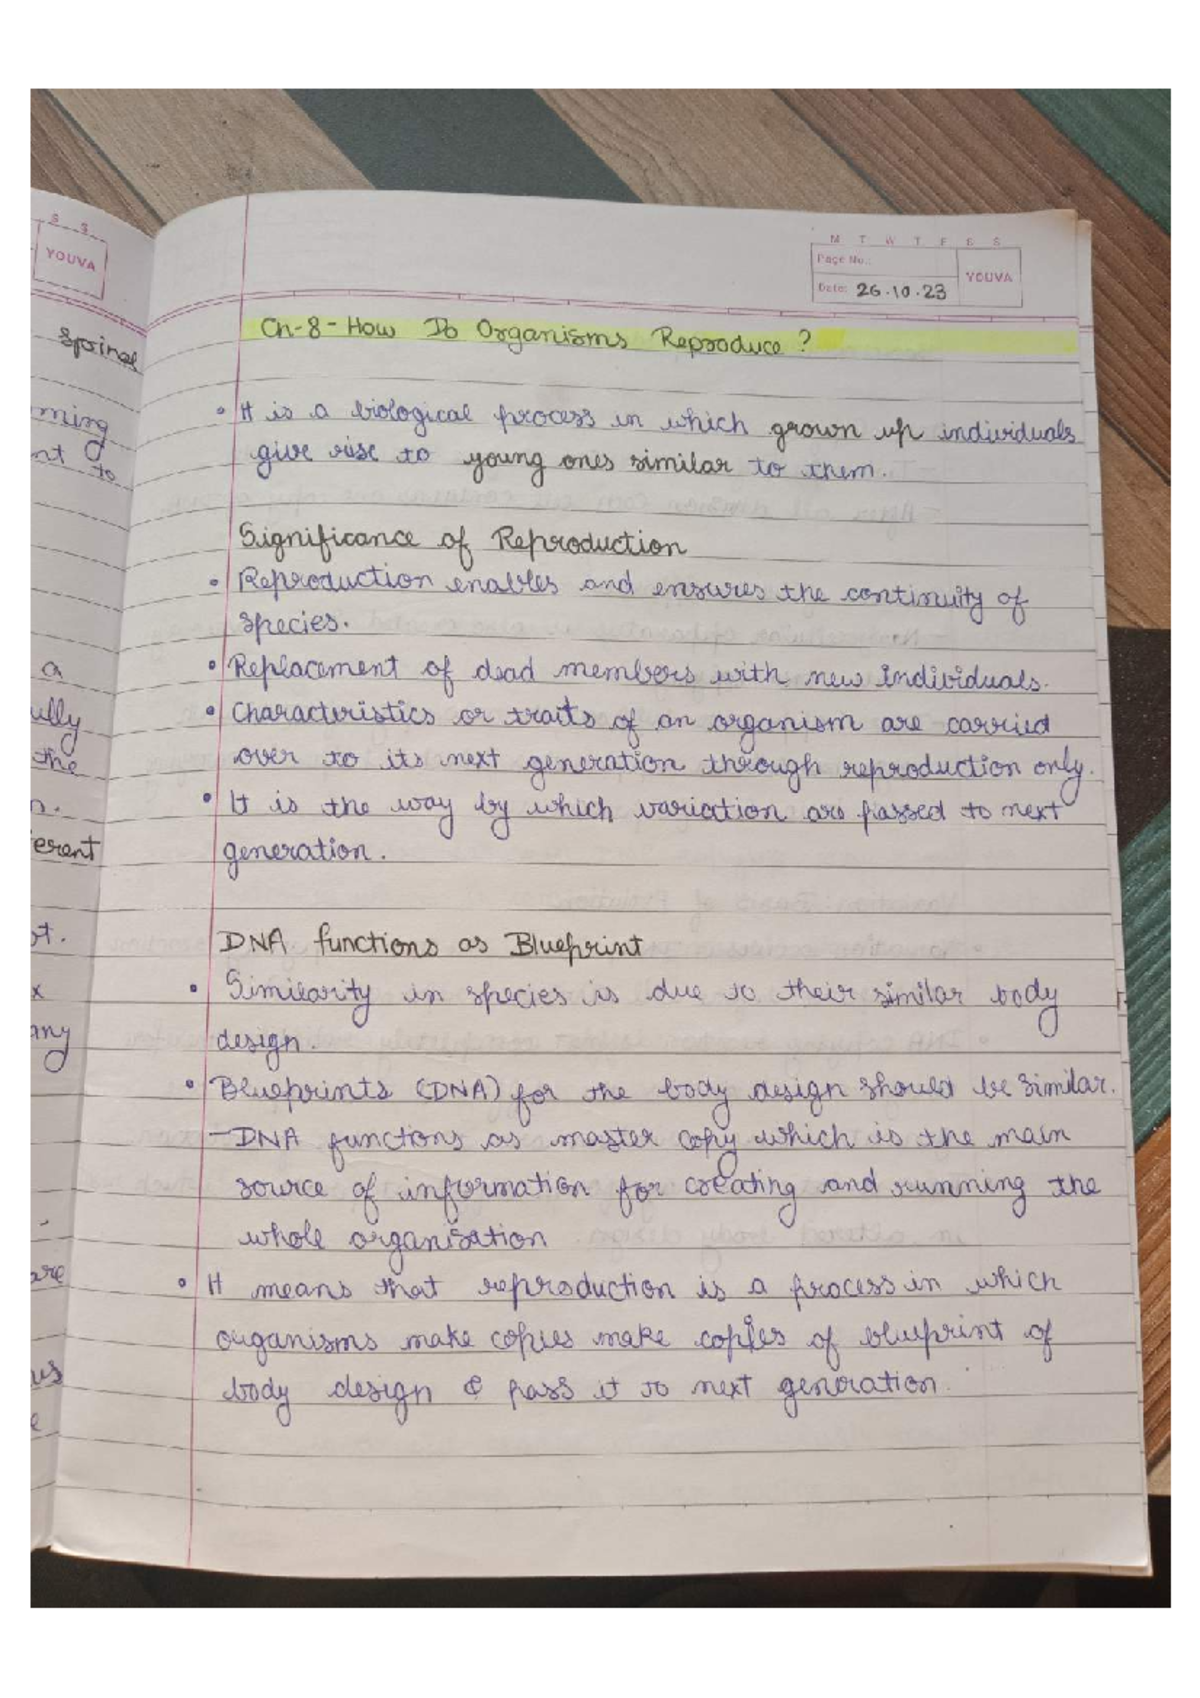 S S
YOUVA
M T W T F S S
Page No.:
YOUVA
Date: 26.10.23
Ch-8-How Do Organisms Reproduce?
• It is a biological process in which grown up individuals
give rise to young ones similar to them.
Significance of Reproduction
• Reproduction enables and ensures the continuity of
species.
• Replacement of dead members with new individuals.
• Characteristics or traits of an organism are carried
over to its next generation through reproduction only.
• It is the way by which variation are passed to next
generation.
DNA functions as Blueprint
• Similarity in species is due to their similar body
design.
• Blueprints (DNA) for the body design should be similar.
-DNA functions as master copy which is the main
source of information for creating and running the
whole organisation
• It means that reproduction is a process in which
organisms make copies make copies of blueprint of
body design & pass it to next generation.
ming
nt to
a
ully
the
n.
erent
ot.
x
any
are
us
e